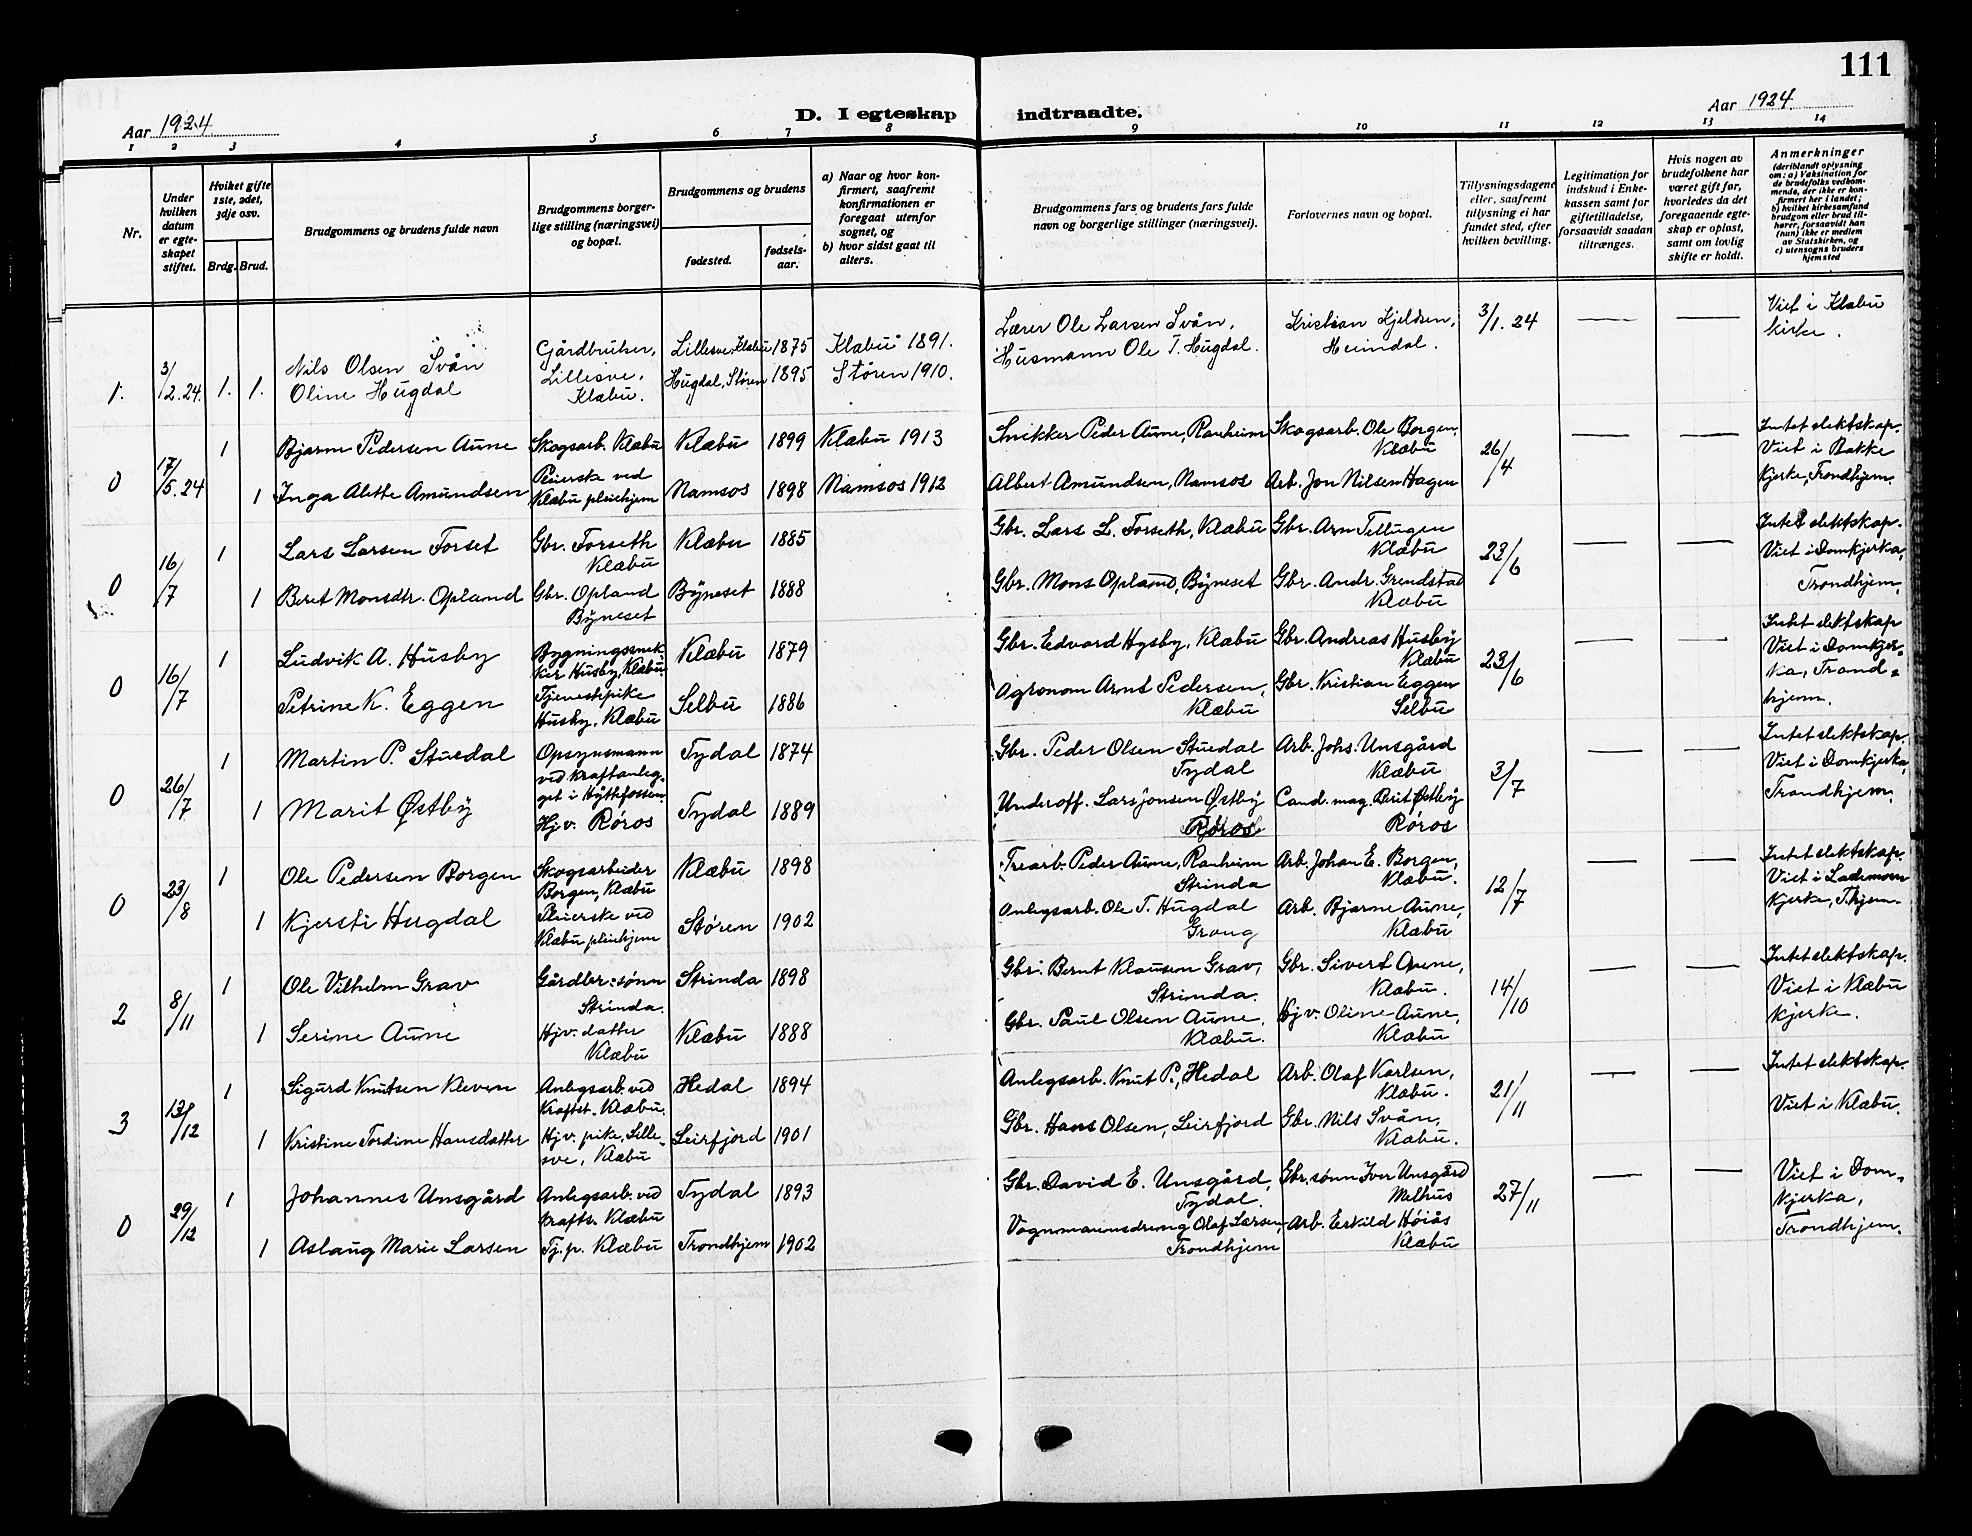 111
Aar 1924
D. I egteskap indtraadte.
Aar 1924
1 2 3 4 5 6 7 8 9 10 11 12 13 14
Nr.
Under hvilken datum er egteskapet stiftet.
Hviket gifte 1ste, 2det, 3dje osv.
Brdg. Brud.
Brudgommens og brudens fulde navn
Brudgommens borgerlige stilling (næringsvei) og bopæl.
Brudgommens og brudens
fødested.
fødselsaar.
a) Naar og hvor konfirmert, saafremt konfirmationen er foregaat utenfor sognet, og
b) hvor sidst gaat til alters.
Brudgommens fars og brudens fars fulde navn og borgerlige stillinger (næringsvei).
Forlovernes navn og bopæl.
Tillysningsdagene eller, saafremt tillysning ei har fundet sted, efter hvilken bevilling.
Legitimation for indskud i Enkekassen samt for giftetilladelse, forsaavidt saadan tiltrænges.
Hvis nogen av brudefolkene har været gift før, hvorledes da det foregaaende egteskap er opløst, samt om lovlig skifte er holdt.
Anmerkninger
(deriblandt oplysning om: a) Vaksination for de brudefolks vedkommende, der ikke er konfirmert her i landet; b) hvilket kirkesamfund brudgom eller brud tilhører, forsaavidt han (hun) ikke er medlem av Statskirken, og c) utensogns bruders hjemsted
1. 3/2.24. 1. 1.
Nils Olsen Svån
Oline Hugdal
Gårdbruker, Lillesve, Klæbu.
Lillesve, Klæbu 1875 Klæbu 1891.
Hugdal, Støren 1895 Støren 1910.
Lærer Ole Larsen Svån,
Husmann Ole T. Hugdal.
Kristian Kjeldsen,
Heimdal.
3/1. 24 — —
Viet i Klæbu
kirke.
0 17/5.24 1
Bjarne Pedersen Aune Skogsarb. Klæbu Klæbu 1899 Klæbu 1913
1 Inga Alette Amundsen Pleierske ved
Klæbu pleiehjem Namsos 1898 Namsos 1912
Snikker Peder Aune, Ranheim
Albert Amundsen, Namsos
Skogsarb. Ole Borgen,
Klæbu
Arb. Jon Nilsen Hagen
26/4 — —
Intet slektskap.
Viet i Bakke
Kjerke, Trondhjem.
0 16/7 1
Lars Larsen Forset Gbr. Forseth
Klæbu Klæbu 1885
1 Beret Monsdtr. Opland Gbr. Opland
Byneset Byneset 1888
Gbr. Lars L. Forseth, Klæbu
Gbr. Mons Opland, Byneset
Gbr. Arn Tellugen
Klæbu
Gbr. Andr. Grendstad
Klæbu
23/6 — —
Intet slektskap.
Viet i Domkjerka,
Trondhjem.
0 16/7 1
Ludvik A. Husby Bygningssnek
ker Husby, Klæbu. Klæbu 1879
1 Petrine K. Eggen Tjenestpike
Husby, Klæbu Selbu 1886
Gbr. Edvard Hysby, Klæbu
Agronom Arnt Pedersen,
Klæbu
Gbr. Andreas Husby
Klæbu
Gbr. Kristian Eggen
Selbu
23/6 — —
Intet slektskap
Viet i Domkjer-
ka, Trond-
hjem.
0 26/7 1
Martin P. Stuedal Opsynsmann
ved kraftanleg-
get i Hyttfossen. Tydal 1874
1 Marit Østby Hjv. Røros Tydal 1889
Gbr. Peder Olsen Stuedal
Tydal
Underoff. Lars Jonsen Østby
Røros
Arb. Johs. Unsgård
Klæbu
Cand. mag. Berit Østby
Røros
3/7 — —
Intet slektskap.
Viet i Domkjerka,
Trondhjem.
0 23/8 1
Ole Pedersen Borgen Skogsarbeider
Borgen, Klæbu Klæbu 1898
1 Kjersti Hugdal Pleierske ved
Klæbu pleiehjem Støren 1902
Trearb. Peder Aune, Ranheim
Strinda
Anlegsarb. Ole T. Hugdal
Grong
Arb. Johan E. Borgen,
Klæbu.
Arb. Bjarne Aune,
Klæbu
12/7 — —
Intet slektskap.
Viet i Lademoen
Kjerke, Thjem.
2 8/11 1
Ole Vilhelm Grav Gårdbr: sønn
Strinda. Strinda 1898
1 Serine Aune Hjv. datter
Klæbu Klæbu 1888
Gbr. Bernt Klausen Grav,
Strinda.
Gbr. Paul Olsen Aune,
Klæbu.
Gbr. Sivert Aune,
Klæbu.
Hjv. Oline Aune,
Klæbu
14/10 — —
Intet slektskap.
Viet i Klæbu
Kjerke.
3 13/12 1
Sigurd Knutsen Kleven Anlegsarb. ved
Kraftst. Klæbu. Hedal 1894
1 Kristine Tordine Hansdatter Hjv. pike, Lille-
sve, Klæbu Leirfjord 1901
Anlegsarb. Knut P., Hedal
Gbr. Hans Olsen, Leirfjord
Arb. Olaf Karlsen,
Klæbu.
Gbr. Nils Svån,
Klæbu.
21/11 — —
Intet slektskap.
Viet i Klæbu.
0 29/12 1
Johannes Unsgård Anlegsarb. ved
krafts. Klæbu Tydal 1893
1 Aslaug Marie Larsen Tj.p. Klæbu Trondhjem 1902
Gbr. David E. Unsgård,
Tydal.
Vognmannsdreng Olaf Larsen,
Trondhjem
Gbr. sønn Iver Unsgård
Melhus
Arb. Eskild Høiås
Klæbu
27/11 — —
Viet i Dom-
kjerka,
Trondhjem.